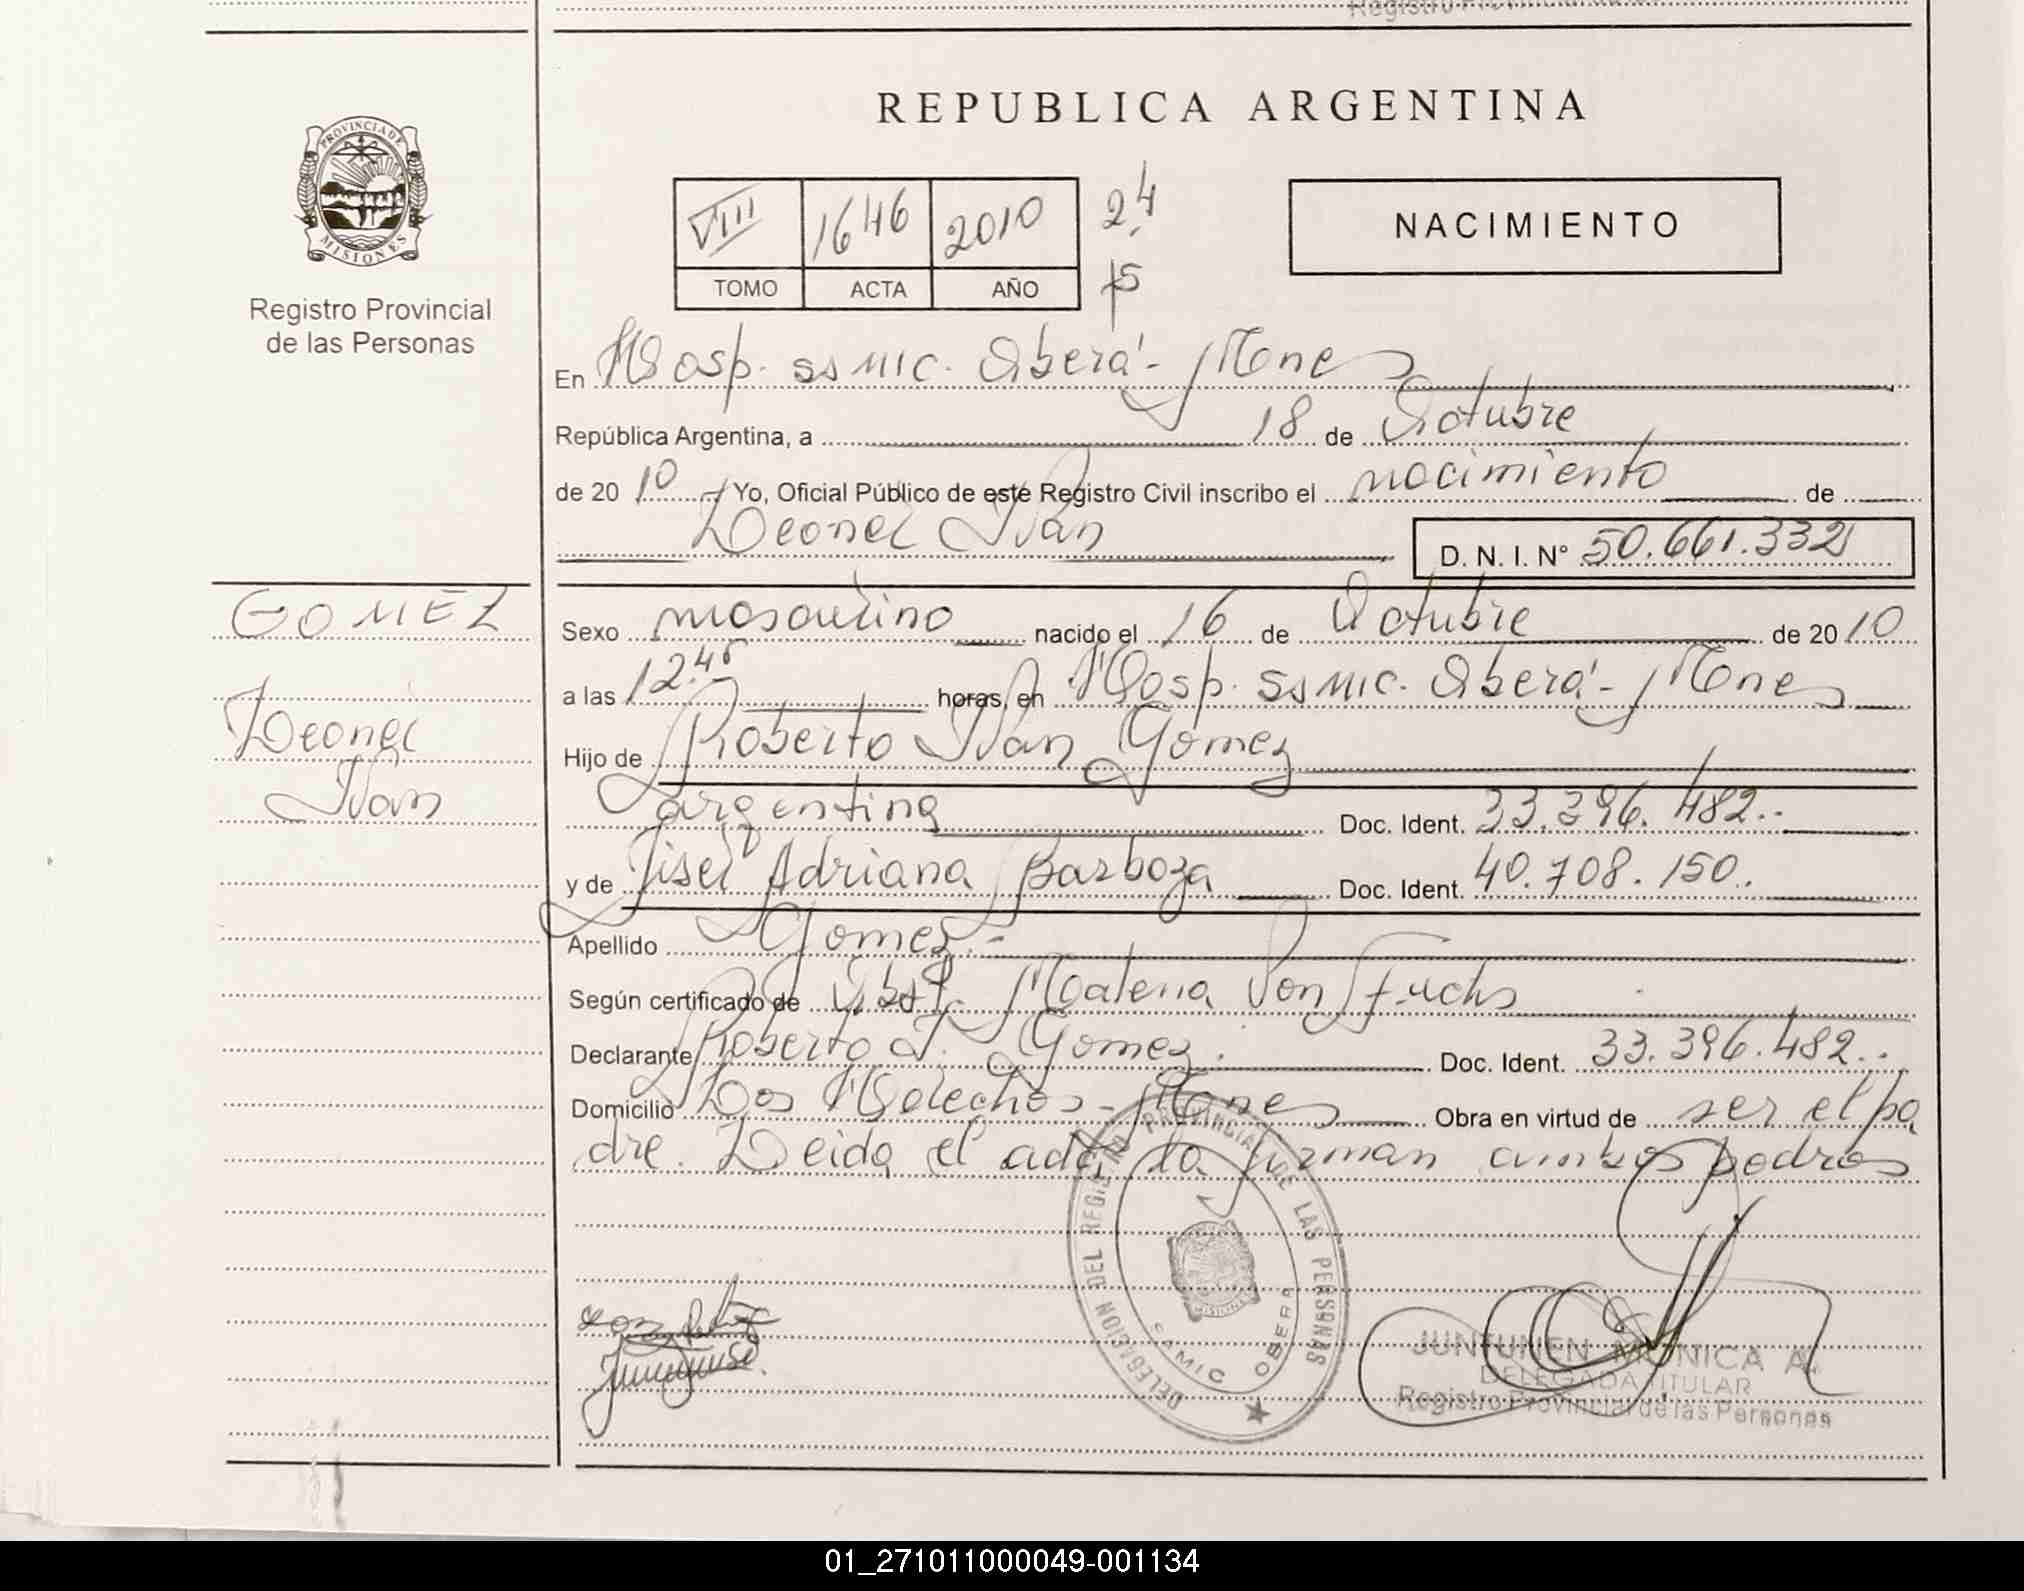 REPUBLICA ARGENTINA
PROVINCIA DE
MISIONES
Registro Provincial
de las Personas
VIII 1646 2010 24
TOMO ACTA AÑO 15
NACIMIENTO
En Hosp. ss mic. Oberá - Mones
República Argentina, a 18 de Octubre
de 20 10 Yo, Oficial Público de este Registro Civil inscribo el nacimiento de
Leonel Iván
D. N. I. N° 50.661.332
GOMEZ
Leonel
Iván
Sexo masculino nacido el 16 de Octubre de 20 10
a las 12.45 horas, en Hosp. ss mic. Oberá - Mones
Hijo de Roberto Iván Gomez
argentina Doc. Ident. 33.396.482.-
y de Jisel Adriana Barboza Doc. Ident. 40.708.150.
Apellido Gomez.-
Según certificado de Obst. Von Fuchs
Declarante Roberto I. Gomez. Doc. Ident. 33.396.482.-
Domicilio Dos Mones Obra en virtud de ser el pa
dre. Leida el acta la firman ambos padres
DELEGACION DEL REGISTRO PROVINCIAL DE LAS PERSONAS
SAMIC OBERA
MISIONES
JUNTUNEN MONICA A.
DELEGADA TITULAR
Registro Provincial de las Personas
01_271011000049-001134